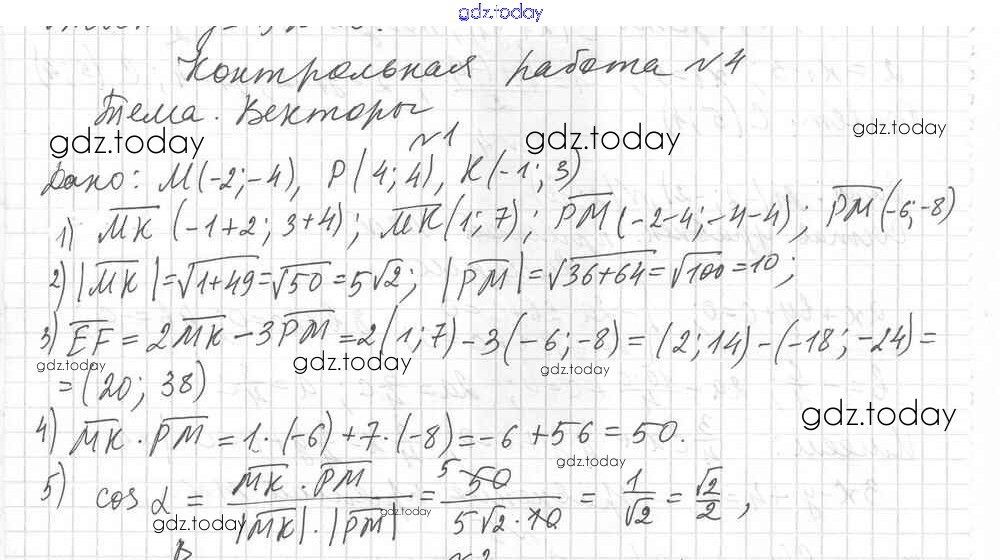 gdz.today
Контрольная работа №4
Тема. Векторы
gdz.today gdz.today gdz.today
№1
Дано: M(-2;-4), P(4;4), K(-1;3)
1) MK (-1+2; 3+4); MK(1;7); PM(-2-4;-4-4); PM(-6;-8)
2) |MK|=√1+49=√50=5√2; |PM|=√36+64=√100=10;
3) EF = 2MK-3PM=2(1;7)-3(-6;-8)=(2;14)-(-18;-24)=
gdz.today gdz.today gdz.today
=(20; 38)
gdz.today
4) MK·PM=1·(-6)+7·(-8)=-6+56=50.
gdz.today
5) cos α = MK·PM / |MK|·|PM| = 5 50 / 5√2·10 = 1/√2 = √2/2,
gdz.today gdz.today